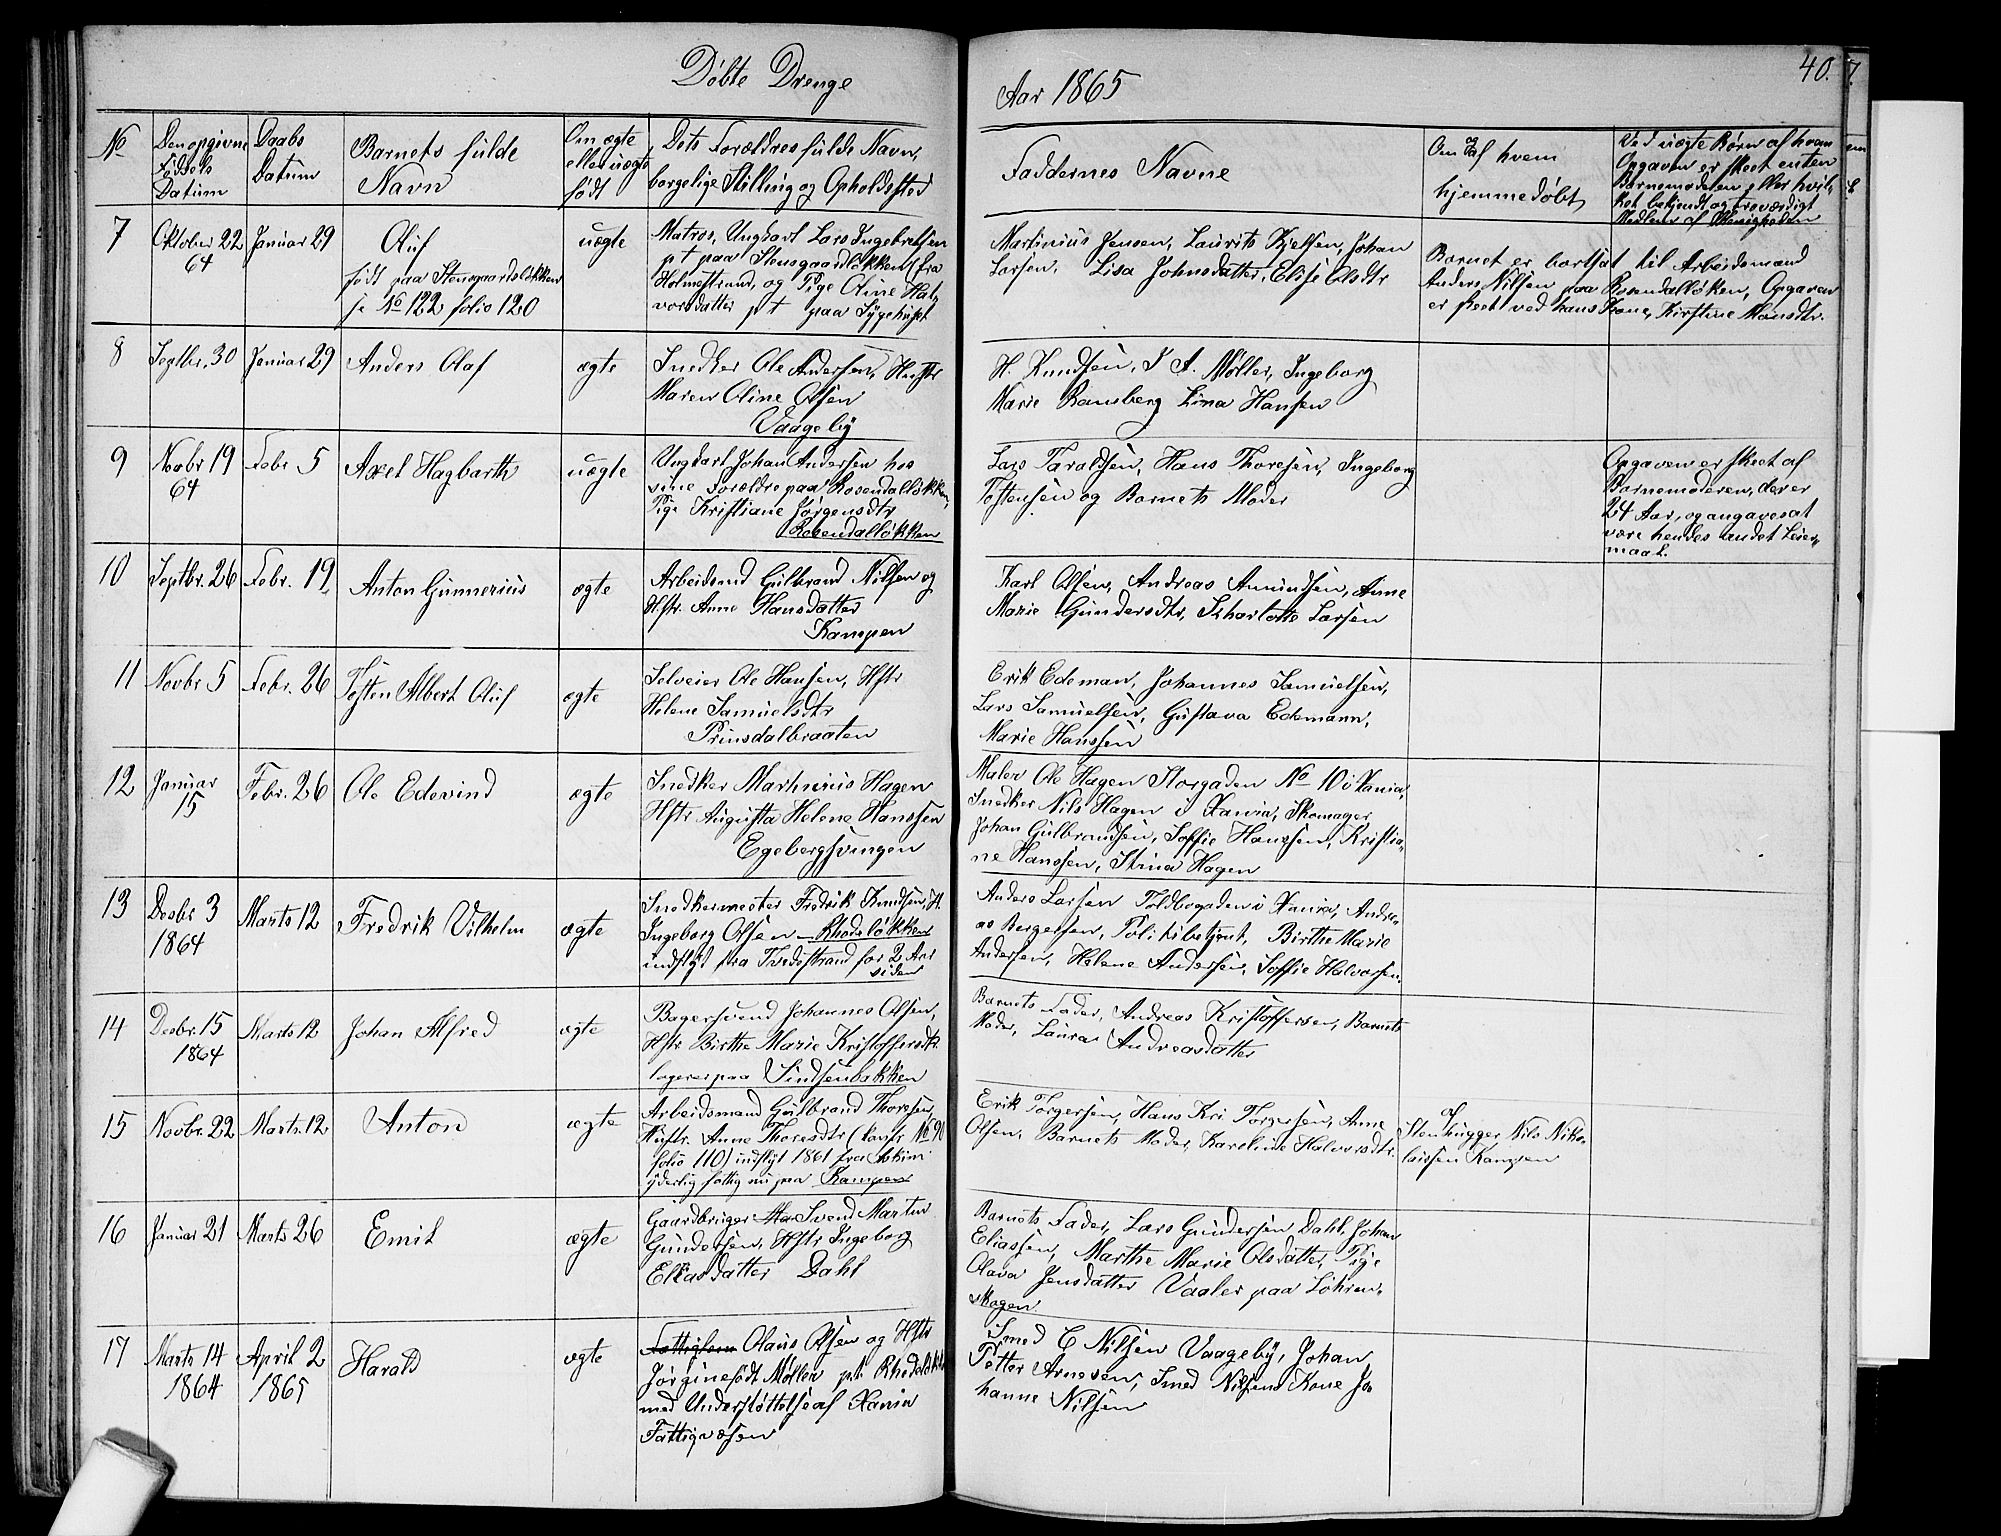 Døbte Drenge
Aar 1865
40.
No
Den opgivne
Fødsels
Datum
Daabs
Datum
Barnets fulde
Navn
Om ægte
eller uægte
født
Dets Forældres fulde Navn,
borgelige Stilling og Opholdssted
Faddernes Navne
Om & af hvem
hjemmedøbt
Ved uægte Børn af hvem
Opgaven er skeet enten
Barnemoderen eller hvil-
ket bekjendt og troværdigt
Medlem af Menigheden
7
Oktober 22
64
Januar 29
Oluf
født paa Stensgaardløkken
je No 122 folio 120
uægte
Matros, Ungkarl Lars Ingebretsen
pt paa Stensgaardløkken fra
Holmestrand, og Pige Oline Hal-
vorsdatter pt paa Sygehuset
Martinius Jensen, Laurits Kjelsen, Johan
Larsen, Lisa Johnsdatter, Elise Olsdtr
Barnet er bortsat til Arbeidsmand
Anders Nilsen paa Rosendalløken, Opgaven
er skeet ved hans Kone, Kirstine Monsdtr.
8
Septbr. 30
Januar 29
Anders Olaf
ægte
Snedker Ole Andersen, Hustr
Maren Oline Olsen
Vaageby
H. Knudsen, I A. Møller, Ingeborg
Marie Ramsberg Lina Hansen
9
Novbr 19
64
Febr 5
Axel Hagbarth
uægte
Ungkarl Johan Andersen hos
sine Forældre paa Rosendalløkken,
Pige Kristiane Jørgensdtr
Rosendalløkken
Lars Taraldsen, Hans Thoresen, Ingeborg
Tostensen og Barnets Moder
Opgaven er skeet af
Barnemoderen, der er
24 Aar, og angaves at
være hendes andet Leier-
maal.
10
Septbr. 26
Febr. 19
Anton Gunnerius
ægte
Arbeidsmd Gulbrand Nilsen og
Hstr. Anne Hansdatter
Kampen
Karl Olsen, Andreas Amundsen, Anne
Marie Gundersdtr, Scharlotte Larsen
11
Novbr 5
Febr. 26
Tosten Albert Oluf
ægte
Selveier Ole Hansen, Hstr
Helene Samuelsdtr
Prinsdalbraaten
Erik Edeman, Johannes Samuelsen,
Lars Samuelsen, Gustava Edemann,
Marie Hanssen
12
Januar
15
Febr. 26
Ole Edevind
ægte
Snedker Marthinius Hagen
Hstr Augusta Helene Hanssen
Egebergsvingen
Maler Ole Hagen Storgaden No 10 i Xania,
Snedker Nils Hagen i Xania, Skomager
Johan Gulbrandsen, Soffie Hanssen, Kristia-
ne Hanssen, Stina Hagen
13
Decbr 3
1864
Marts 12
Fredrik Vilhelm
ægte
Snedkermester Fredrik Knudsen, H.
Ingeborg Olsen — Rhodeløkken
indflyt fra Tvedestrand for 2 Aar
siden
Anders Larsen Toldbogaden i Xania, Andre-
as Bergersen, Politibetjent, Birthe Marie
Andersen, Helene Andersen, Soffie Halvorsen.
14
Decbr. 15
1864
Marts 12
Johan Alfred
ægte
Bagersvend Johannes Olsen,
Hstr. Birthe Marie Kristoffersdtr.
logerer paa Sindsenbakken
Barnets Fader, Andreas Kristoffersen, Barnets
Moder, Laura Andreasdatter
15
Novbr. 22
Marts. 12
Anton
ægte
Arbeidsmand Gulbrand Thoresen,
Hustr. Anne Thoresdtr (konfr No 90
folio 110) indflyt 1861 fra Askim
yderlig fattig nu paa Kampen
Erik Torgersen, Hans Kri Torgersen, Anne
Olsen, Barnets Moder, Karoline Halvorsdtr.
af
Stenhugger Nils Niko-
laisen Kampen
16
Januar 21
Marts 26
Emil
ægte
Gaardbruger Svend Martin
Gundersen, Hstr Ingeborg
Eliasdatter Dahl
Barnets Fader, Lars Gundersen Dahl, Johan
Eliassen, Marthe Marie Olsdatter, Pige
Olava Jensdatter Vaaler paa Lohren-
skogen
17
Marts 14
1864
April 2
1865
Harald
ægte
Fattiglem Olaus Olsen og Hstr
Jørgine født Møller pt Rhodeløkken
med Understøttelse af Xania
Fattigvæsen
Smed C Nilsen Vaageby, Johan
Petter Arnesen, Smed Nilsens Kone Jo
hanne Nilsen